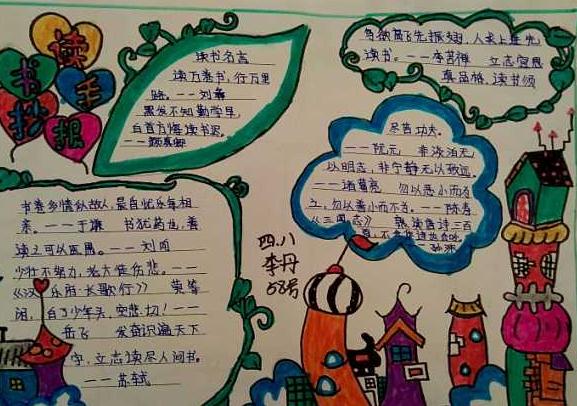 读书手抄报
读书名言
读万卷书，行万里
路。——刘彝
黑发不知勤学早，
白首方悔读书迟。
——颜真卿
鸟欲高飞先振翅，人求上进先
读书。——李苦禅 立志宜思
真品格，读书须
尽苦功夫。
——阮元 非淡泊无
以明志，非宁静无以致远。
——诸葛亮 勿以恶小而为
之，勿以善小而不为。——陈寿
《三国志》 熟读唐诗三百
首，不会作诗也会吟。
孙洙
书卷多情似故人，晨昏忧乐每相
亲。——于谦 书犹药也，善
读之可以医愚。——刘向
少壮不努力，老大徒伤悲。——
《汉乐府·长歌行》 莫等
闲，白了少年头，空悲切！——
岳飞 发奋识遍天下
字，立志读尽人间书。
——苏轼
四.八
李丹
58号